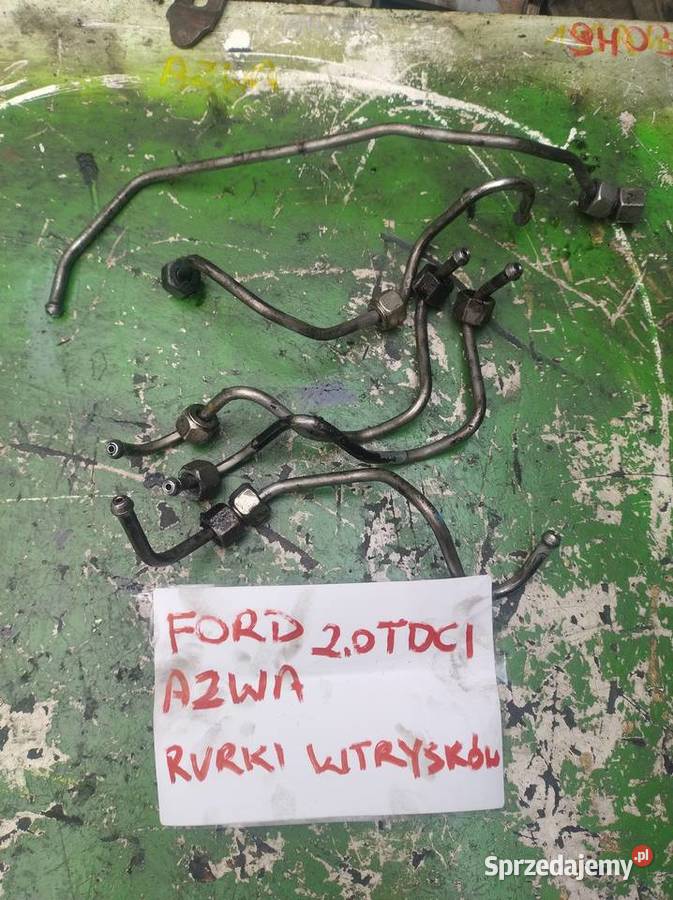 AZWA
FORD 2.0 TDCI
AZWA
RURKI WTRYSKÓW
Sprzedajemy.pl